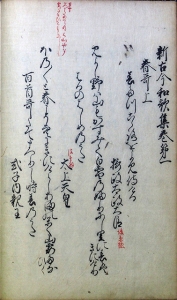 新古今和歌集巻第一
春哥上
春たつ心をよみ侍ける
摂政太政大臣
みよし野は山もかすみてしら雪のふりにし里に春はきにけり
はるのはしめのうた
太上天皇
ほの〱と春こそ空にきにけらし天のかく山霞たなひく
百首哥たてまつりし時春のうた
式子内親王